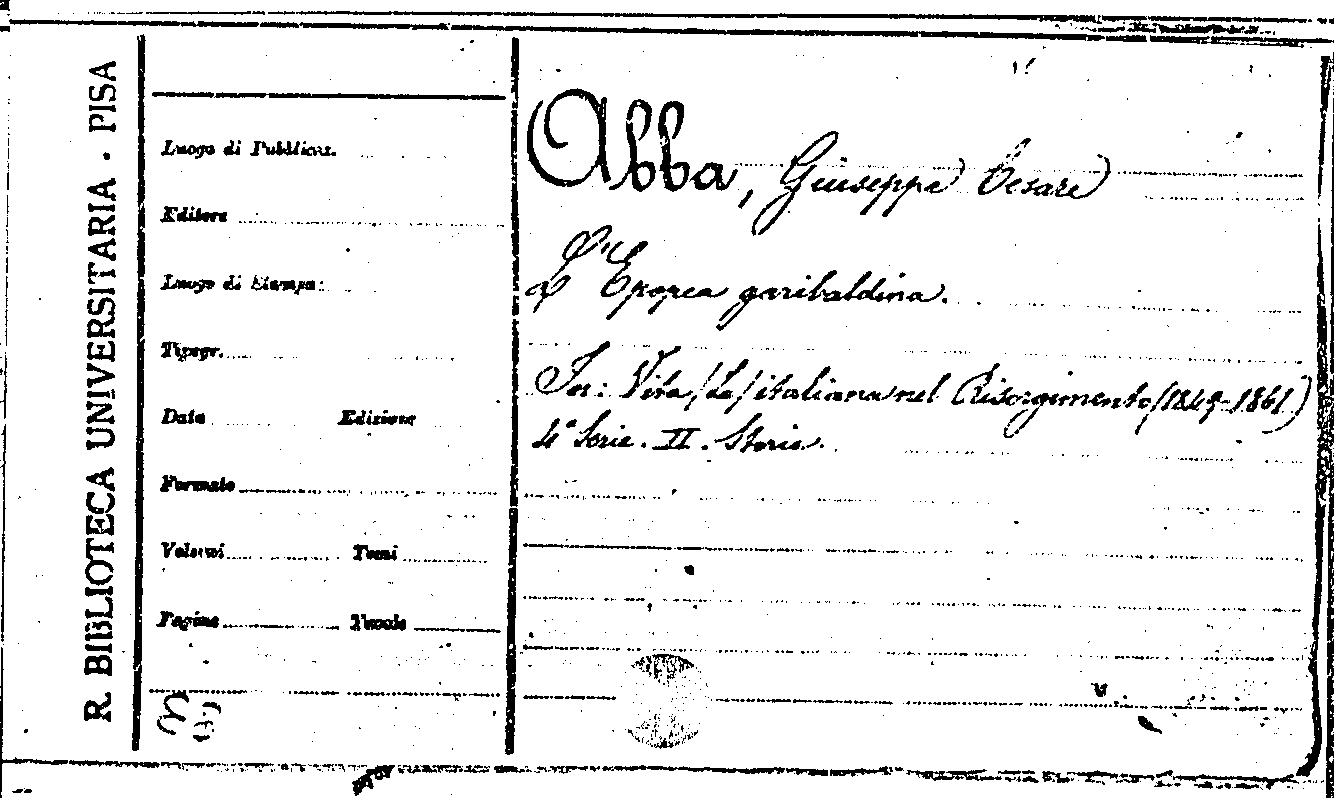 R. BIBLIOTECA UNIVERSITARIA - PISA
Luogo di Pubblicaz.
Editore
Luogo di Stampa:
Tipogr.
Data Edizione
Formato
Volumi Tomi
Pagine Tavole
Abba, Giuseppe Cesare
L'Epopea garibaldina.
In: Vita /La/ italiana nel Risorgimento (1849-1861)
4ª Serie. II. Storia.